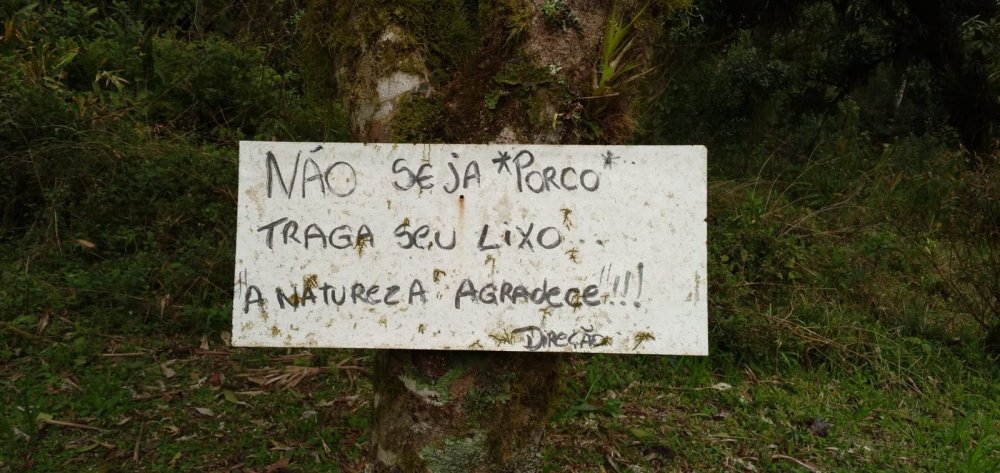 NÃO SEJA *PORCO*
TRAGA SEU LIXO...
"A NATUREZA AGRADECE"!!!
DIREÇÃO